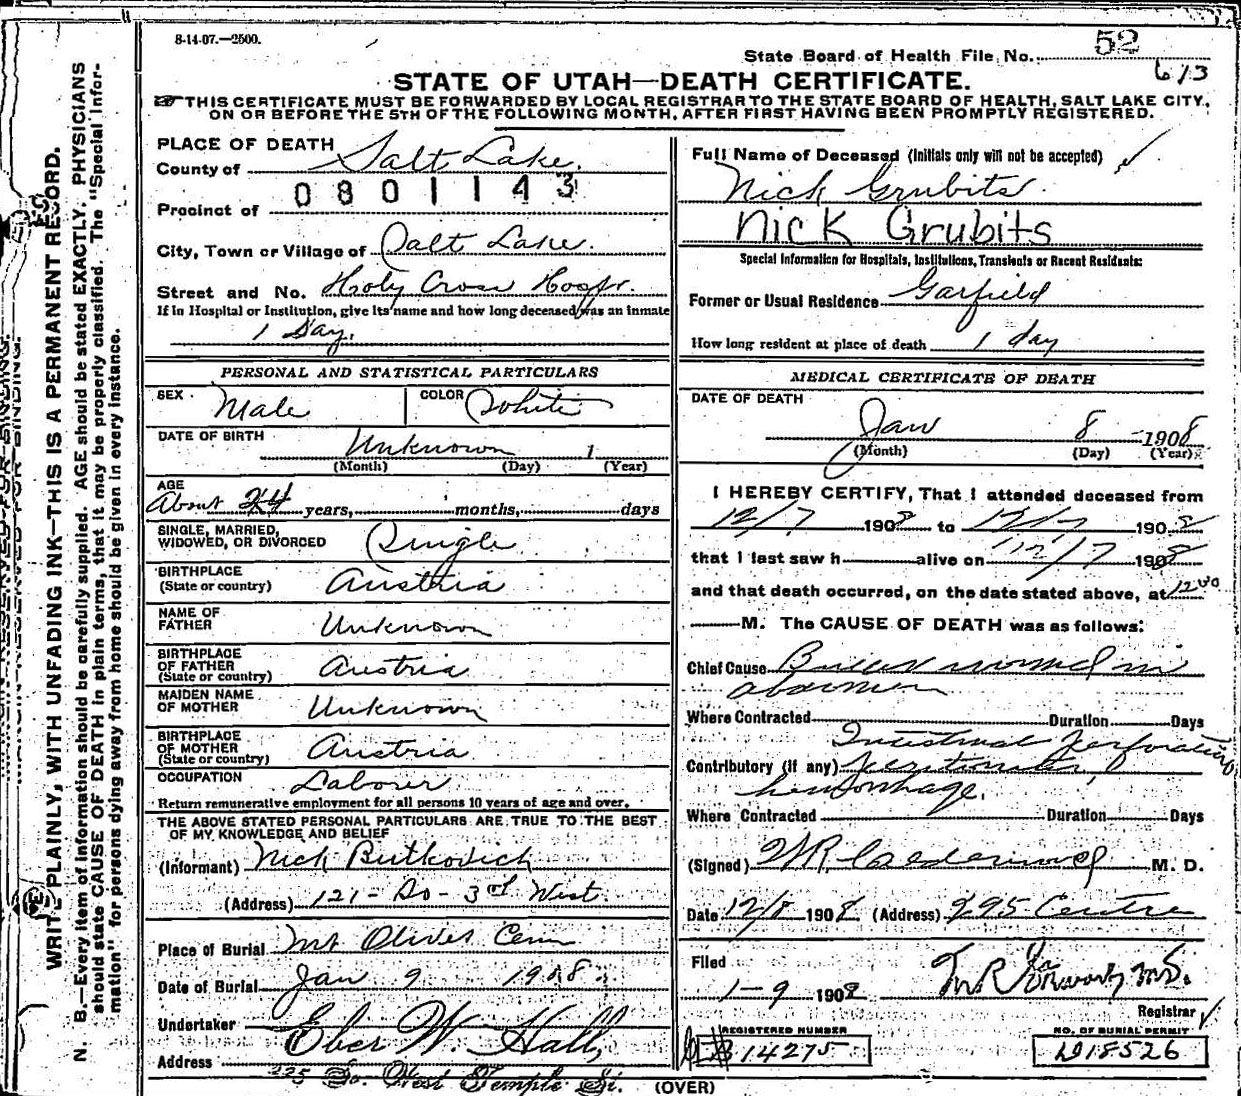 8-14-07.—2500.
State Board of Health File No. 52
613
STATE OF UTAH—DEATH CERTIFICATE.
THIS CERTIFICATE MUST BE FORWARDED BY LOCAL REGISTRAR TO THE STATE BOARD OF HEALTH, SALT LAKE CITY,
ON OR BEFORE THE 5TH OF THE FOLLOWING MONTH, AFTER FIRST HAVING BEEN PROMPTLY REGISTERED.
PLACE OF DEATH
County of Salt Lake.
0801143
Precinct of
City, Town or Village of Salt Lake.
Street and No. Holy Cross Hosp.
If in Hospital or Institution, give its name and how long deceased was an inmate
1 Day.
PERSONAL AND STATISTICAL PARTICULARS
SEX Male COLOR White
DATE OF BIRTH Unknown 1
(Month) (Day) (Year)
AGE
About 24 years, months, days
SINGLE, MARRIED,
WIDOWED, OR DIVORCED Single
BIRTHPLACE
(State or country) Austria
NAME OF
FATHER Unknown
BIRTHPLACE
OF FATHER
(State or country) Austria
MAIDEN NAME
OF MOTHER Unknown
BIRTHPLACE
OF MOTHER
(State or country) Austria
OCCUPATION Laborer
Return remunerative employment for all persons 10 years of age and over.
THE ABOVE STATED PERSONAL PARTICULARS ARE TRUE TO THE BEST
OF MY KNOWLEDGE AND BELIEF
(Informant) Nick Butkovich
(Address) 121 - So - 3rd West
Place of Burial Mt Olivet Cem
Date of Burial Jan 9 1908
Undertaker Eber W. Hall,
Address 225 So. West Temple St.
(OVER)
Full Name of Deceased (Initials only will not be accepted)
Nick Grubits
Nick Grubits
Special Information for Hospitals, Institutions, Transients or Recent Residents:
Former or Usual Residence Garfield
How long resident at place of death 1 day
MEDICAL CERTIFICATE OF DEATH
DATE OF DEATH
Jan 8 -1908
(Month) (Day) (Year)
I HEREBY CERTIFY, That I attended deceased from
12/7 1908 to 12/7 1908
that I last saw h alive on 12/7 1908
and that death occurred, on the date stated above, at 12 00
M. The CAUSE OF DEATH was as follows:
Chief Cause Bullet wound in
abdomen
Where Contracted Duration Days
Intestinal perforation
Contributory (if any) peritonitis,
hemorrhage.
Where Contracted Duration Days
(Signed) M. D.
Date 12/8 1908 (Address) 295 Centre
Filed
1-9 1908
Registrar
REGISTERED NUMBER
14275
NO. OF BURIAL PERMIT
D18526
N. B.—Every item of information should be carefully supplied. AGE should be stated EXACTLY. PHYSICIANS
should state CAUSE OF DEATH in plain terms, that it may be properly classified. The "Special Infor-
mation" for persons dying away from home should be given in every instance.
WRITE PLAINLY, WITH UNFADING INK—THIS IS A PERMANENT RECORD.
MARGIN RESERVED FOR BINDING.